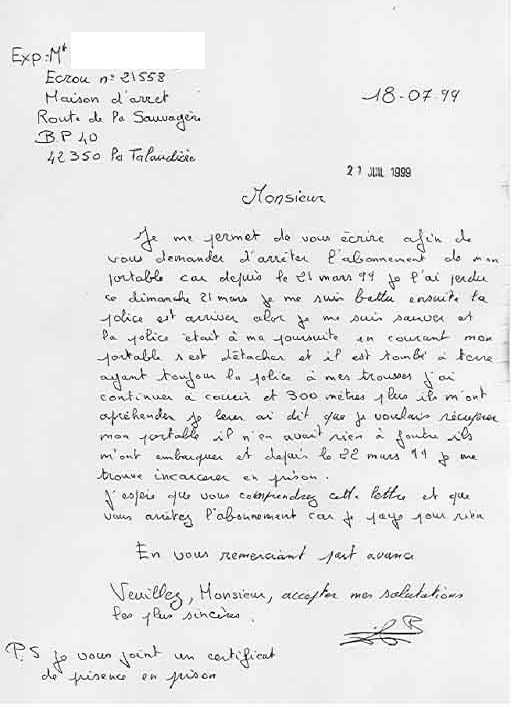 Exp: Mr
Ecrou n° 21558
Maison d'arret
Route de la Sauvagère
B.P 40
42350 la Talaudière
18-07-99
21 JUIL 1999
Monsieur
Je me permet de vous écrire afin de
vous demander d'arrêter l'abonnement de mon
portable car depuis le 21 mars 99 je l'ai perdu
ce dimanche 21 mars je me suis battu ensuite la
police est arriver alor je me suis sauver et
la police était à ma poursuite en courant mon
portable s'est détacher et il est tombé à terre
ayant toujour la police à mes trousses j'ai
continuer à courir et 300 mètres plus ils m'ont
apréhender je leur ai dit que je voulais récuperer
mon portable il n'en avait rien à foutre ils
m'ont embarquer et depuis le 22 mars 99 je me
trouve incarcerer en prison.
J'espère que vous comprendrez cette lettre et que
vous arrêtez l'abonnement car je paye pour rien
En vous remerciant part avance
Veuillez, Monsieur, accepter mes salutations
les plus sincères.
P.S je vous joint un certificat
de présence en prison